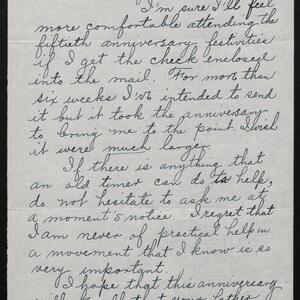 I'm sure I'll feel
more comfortable attending the
fiftieth anniversary festivities
if I get the check enclosed
into the mail. For more than
six weeks I've intended to send
it but it took the anniversary
to bring me to the point. I wish
it were much larger.
If there is anything that
an old timer can do to help,
do not hesitate to ask me at
a moment's notice. I regret that
I am never of practical help in
a movement that I know is so
very important.
I hope that this anniversary